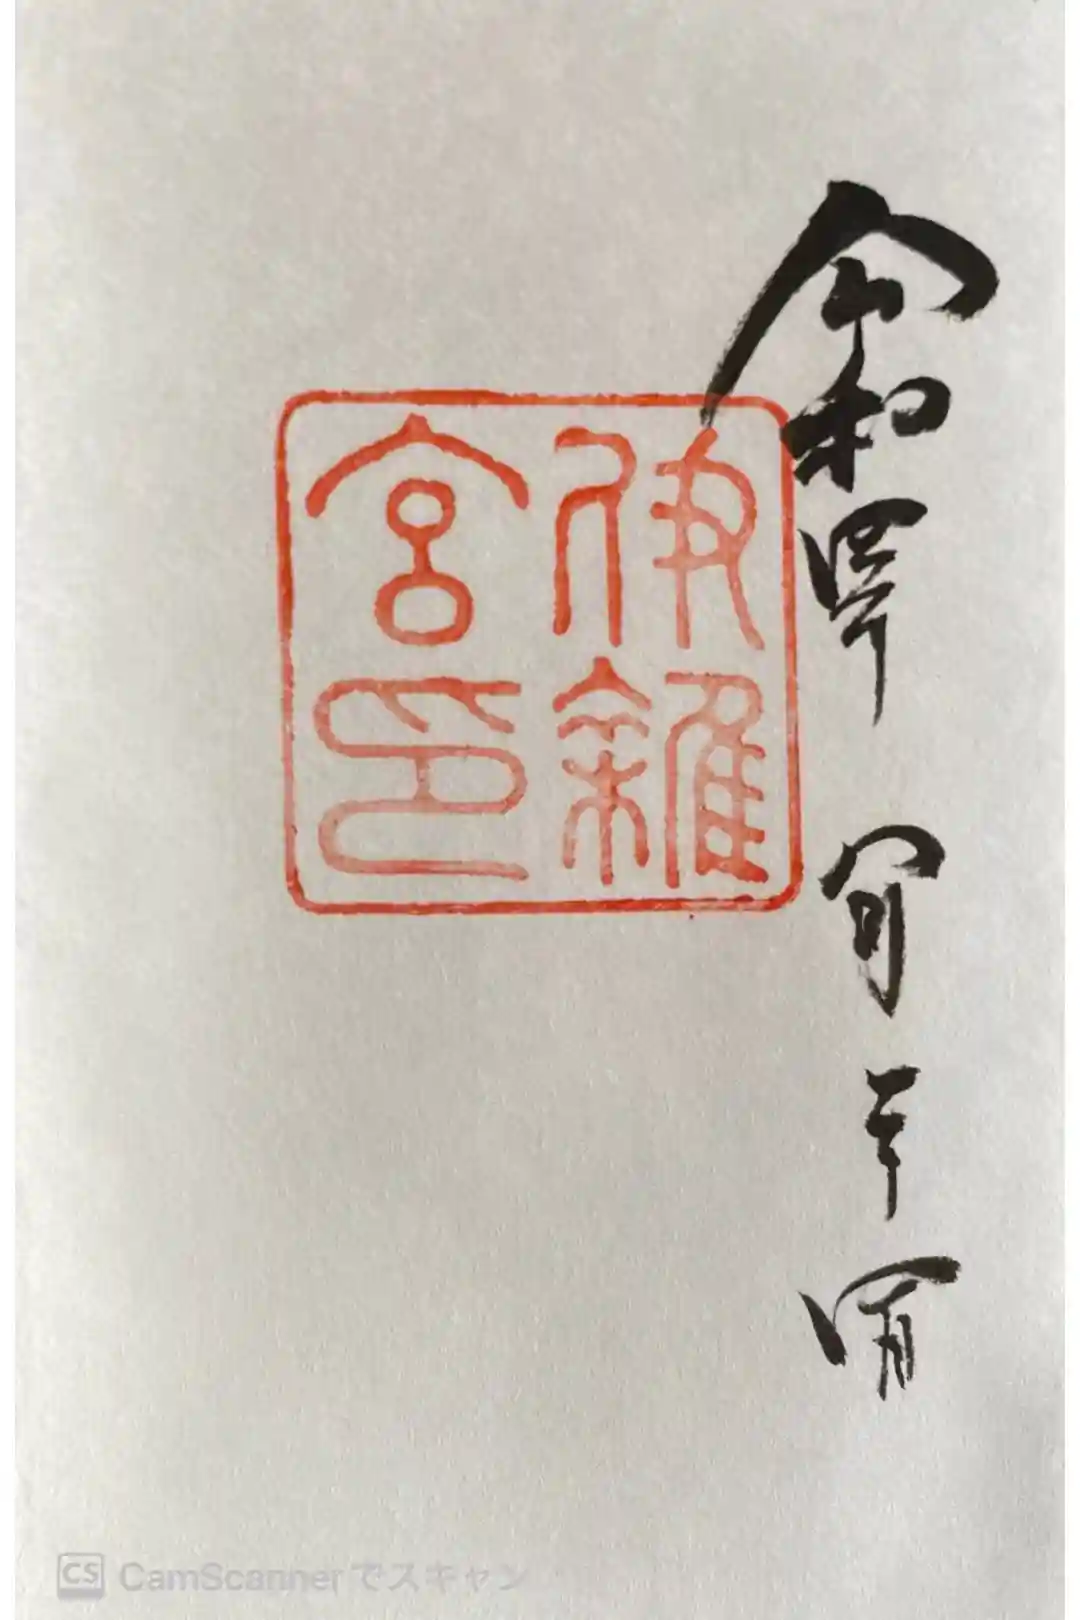 令和四年 月二十 日
伊雜宮印
CamScannerでスキャン